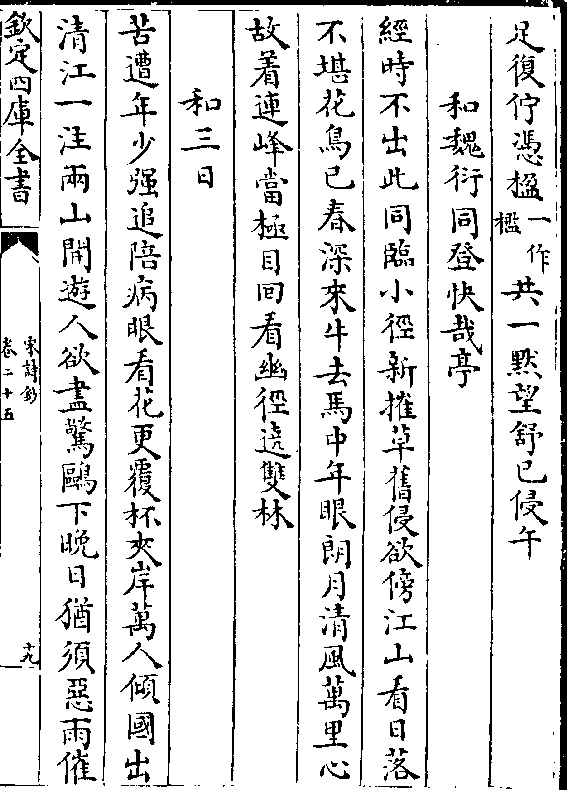 足復佇憑楹一作檻共一黙望舒已侵午
和魏衍同登快哉亭
經時不出此同臨小徑新摧草舊侵欲傍江山看日落
不堪花鳥已春深來牛去馬中年眼朗月清風萬里心
故着連峰當極目回看幽徑遶雙林
和三日
苦遭年少强追陪病眼看花更覆杯夾岸萬人傾國出
清江一注兩山開遊人欲盡驚鷗下晚日猶須惡雨催
欽定四庫全書
宋詩鈔
卷二十五
十九